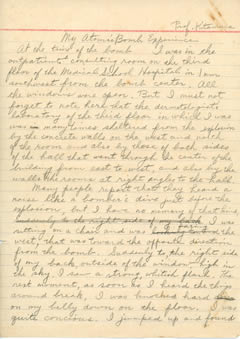 Prof. Kitamura
My Atomic Bomb Experience
At the time of the bomb I was in the
outpatients consulting room on the third
floor of the Medical School Hospital in 1 km
southwest from the bomb center. All
the windows were open. But I must not
forget to note here that the dermatologist
laboratory of the third floor in which I was
was many times sheltered from the explosion
by the concrete walls on the west and
of the room and also by those of both sides
of the hall that went through the center of the
building from east to west, and also by the
walls the rooms at right angle to the hall.
Many people report that they heard a
noise like a bomber's dive just before the
explosion, but I have no memory of that
I was
sitting on a chair and was
the
west, that was toward the opposite direction
from the bomb. Suddenly to the right side
of my back, outside of the window high in
the sky I saw a strong whitish flash. The
next moment, as soon as I heard the things
around break, I was knocked hard
on my belly down on the floor. I was
quite concious. I jumped up and found